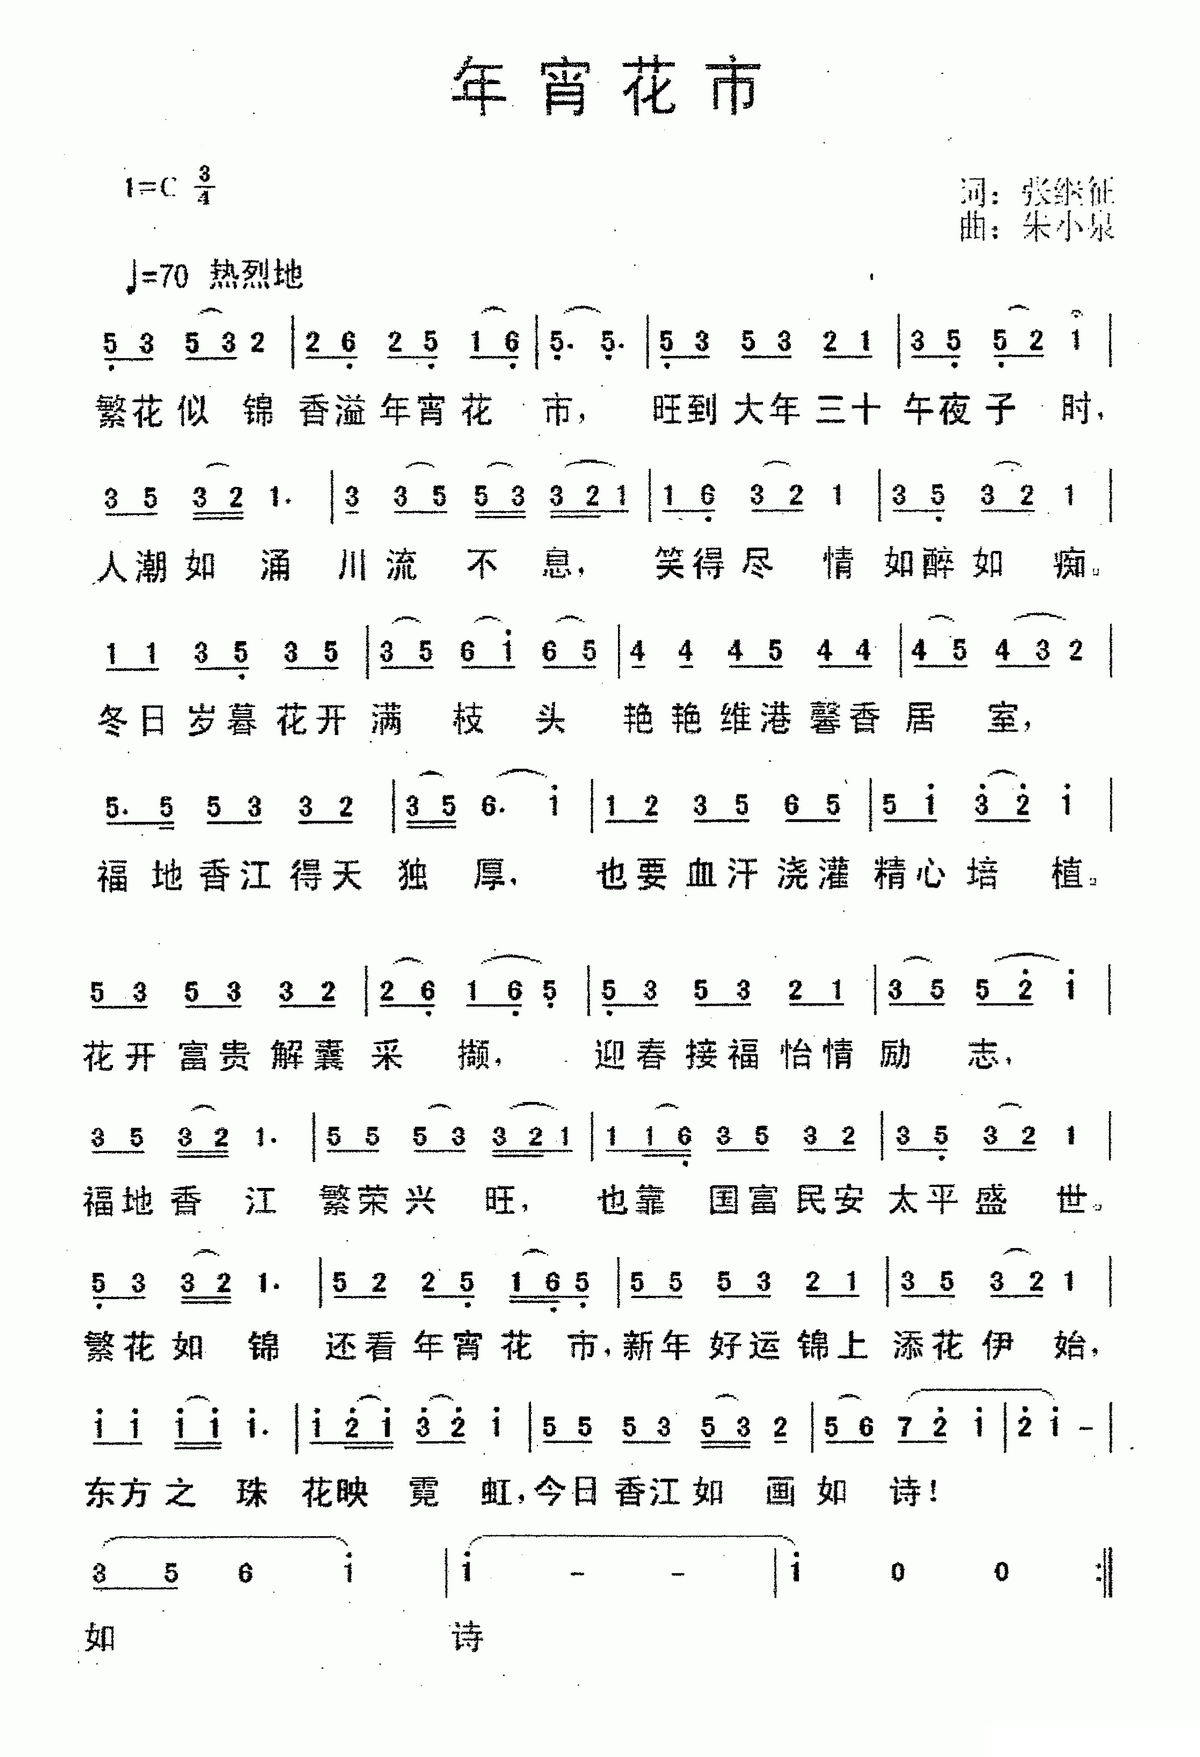 年宵花市
1=C 3/4
词：张继征
曲：朱小泉
♩=70 热烈地
5 3 5 3 2 | 2 6 2 5 1 6 | 5. 5. | 5 3 5 3 2 1 | 3 5 5 2 1 |
繁花似 锦 香溢年宵花 市， 旺到大年三十 午夜子 时，
3 5 3 2 1. | 3 3 5 5 3 3 2 1 | 1 6 3 2 1 | 3 5 3 2 1 |
人潮如 涌 川流 不 息， 笑得尽 情 如醉如 痴。
1 1 3 5 3 5 | 3 5 6 i 6 5 | 4 4 4 5 4 4 | 4 5 4 3 2 |
冬日岁暮花开满 枝 头 艳艳维港馨香居 室，
5. 5 5 3 3 2 | 3 5 6. i | 1 2 3 5 6 5 | 5 i 3 2 i |
福地香江得天独 厚， 也要血汗浇灌精心培 植。
5 3 5 3 3 2 | 2 6 1 6 5 | 5 3 5 3 2 1 | 3 5 5 2 i |
花开富贵解囊采 撷， 迎春接福怡情励 志，
3 5 3 2 1. | 5 5 5 3 3 2 1 | 1 1 6 3 5 3 2 | 3 5 3 2 1 |
福地香 江 繁荣兴 旺， 也靠 国富民安太平盛 世。
5 3 3 2 1. | 5 2 2 5 1 6 5 | 5 5 5 3 2 1 | 3 5 3 2 1 |
繁花如 锦 还看年宵花 市，新年好运锦上添花伊 始，
i i i i i. | i 2 i 3 2 i | 5 5 5 3 5 3 2 | 5 6 7 2 i | 2 i - |
东方之 珠 花映 霓 虹，今日香江如 画如 诗！
3 5 6 i | i - - | i 0 0 :||
如 诗